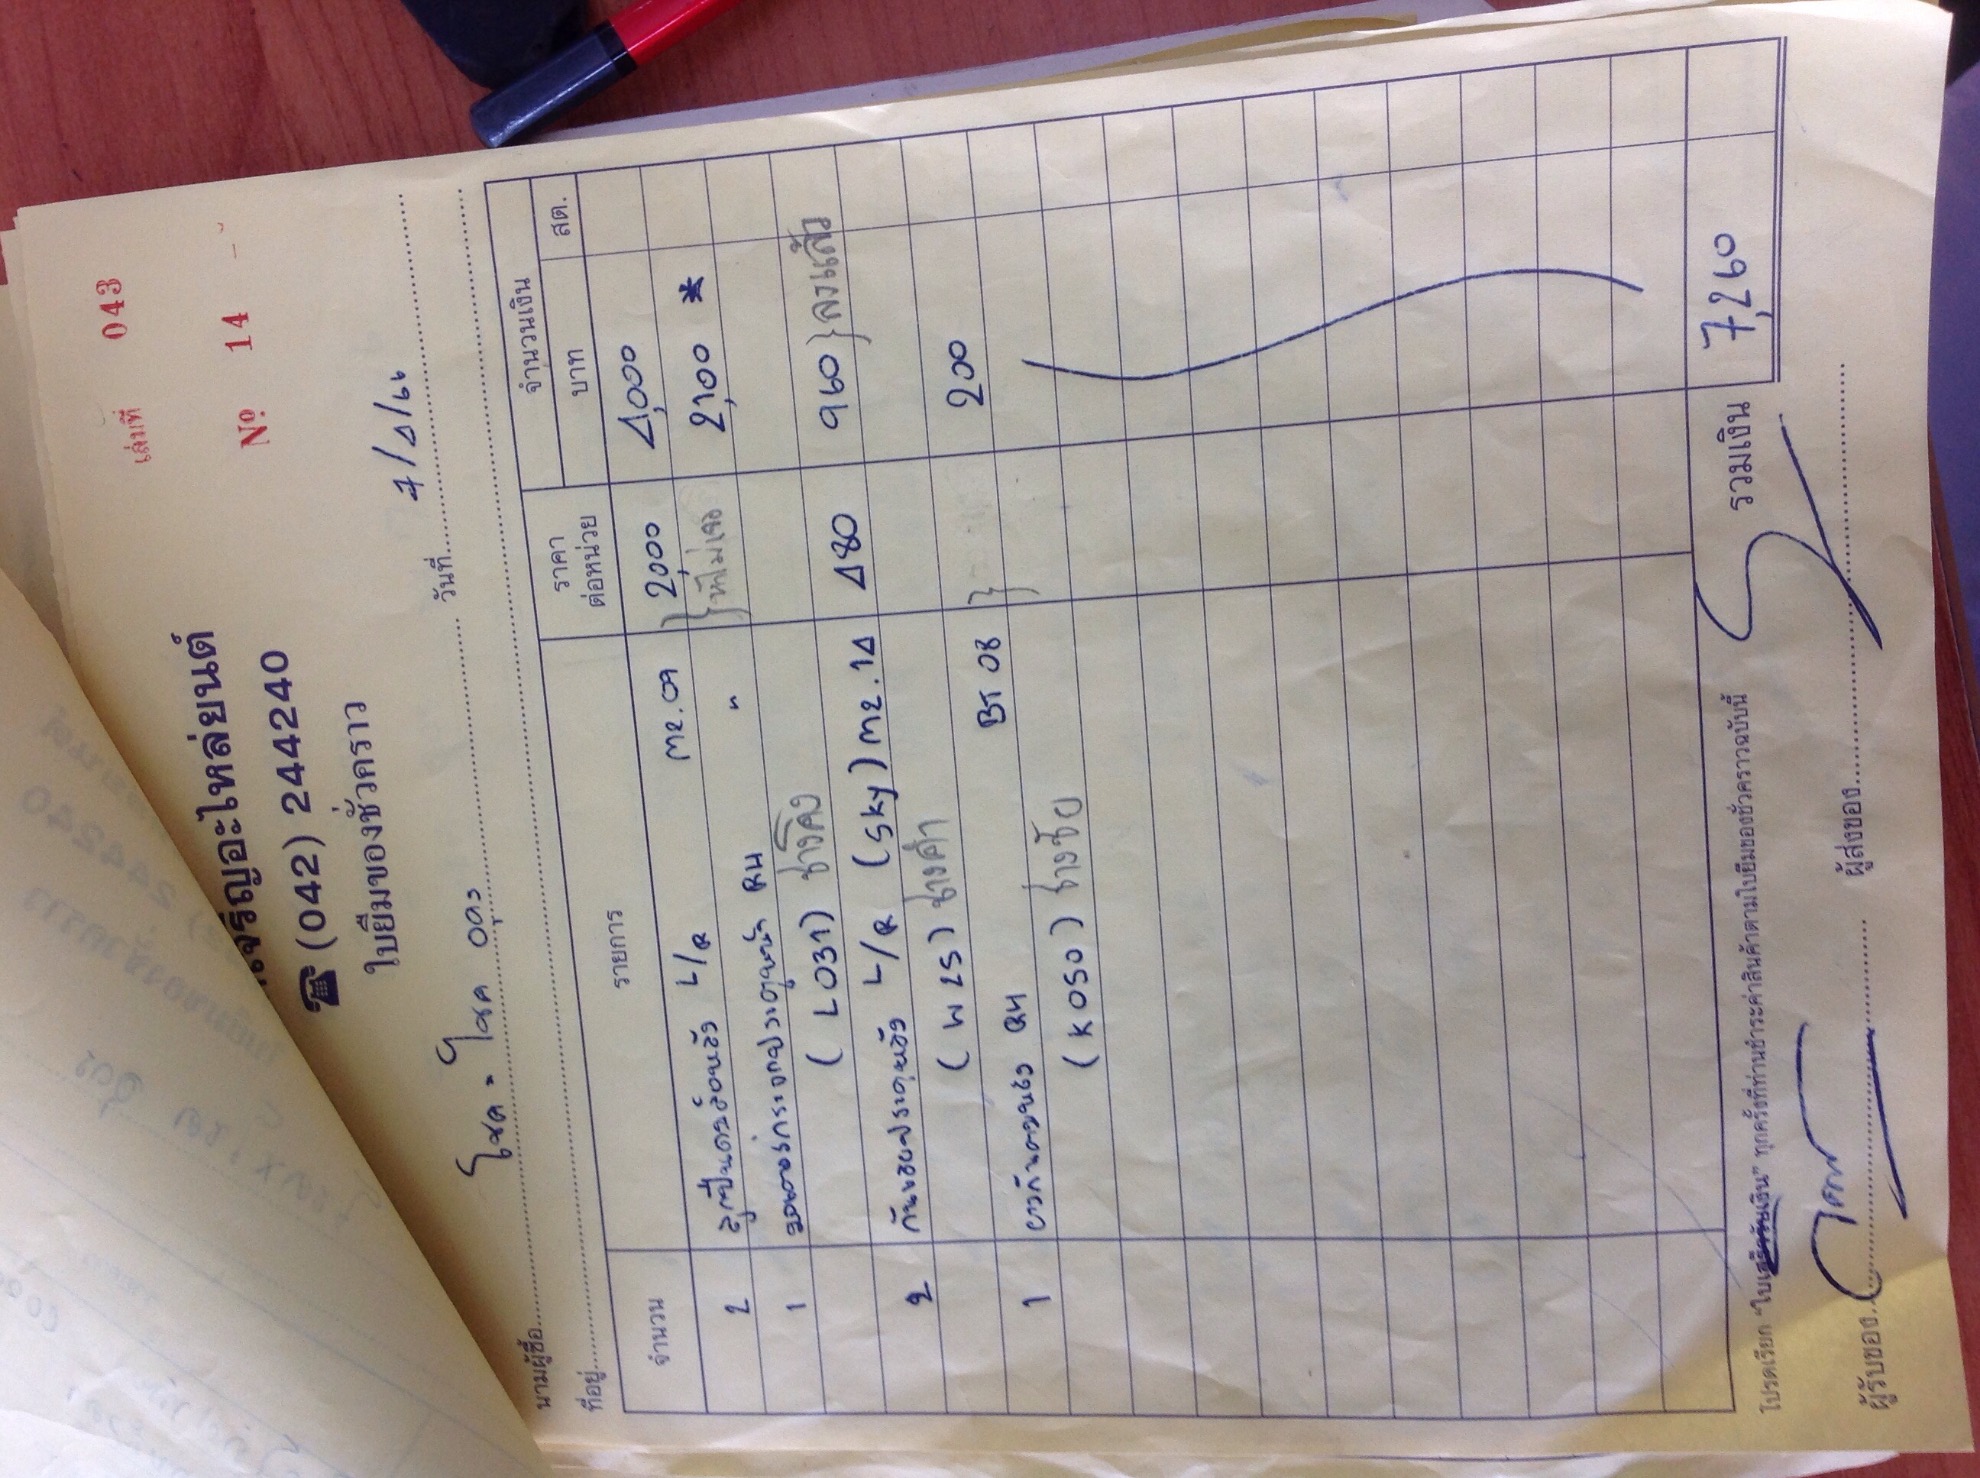 เล่มที่ 043
Nº 14
เจริญอะไหล่ยนต์
☎ (042) 244240
ใบยืมของชั่วคราว
วันที่ 7/4/66
นามผู้ซื้อ โชค = โชค อุดร
ที่อยู่
จำนวน รายการ ราคาต่อหน่วย จำนวนเงิน
บาท สต.
2 ลูกปืนดุมล้อหลัง L/R MZ.09 2,000 4,000
1 มอเตอร์กระจกประตูหน้า RH " 2,100 *
(L031) ช่างโคง
2 กันขอบประตูหลัง L/R (SKY) MZ.14 480 960 } ลงแล้ว
(W25) ช่างคำ
1 RH BT 08 200
(K050) ช่างชัย
รวมเงิน 7,260
โปรดเรียก "ใบเสร็จรับเงิน" ทุกครั้งที่ท่านชำระค่าสินค้าตามใบยืมของชั่วคราวฉบับนี้
ผู้รับของ ผู้ส่งของ